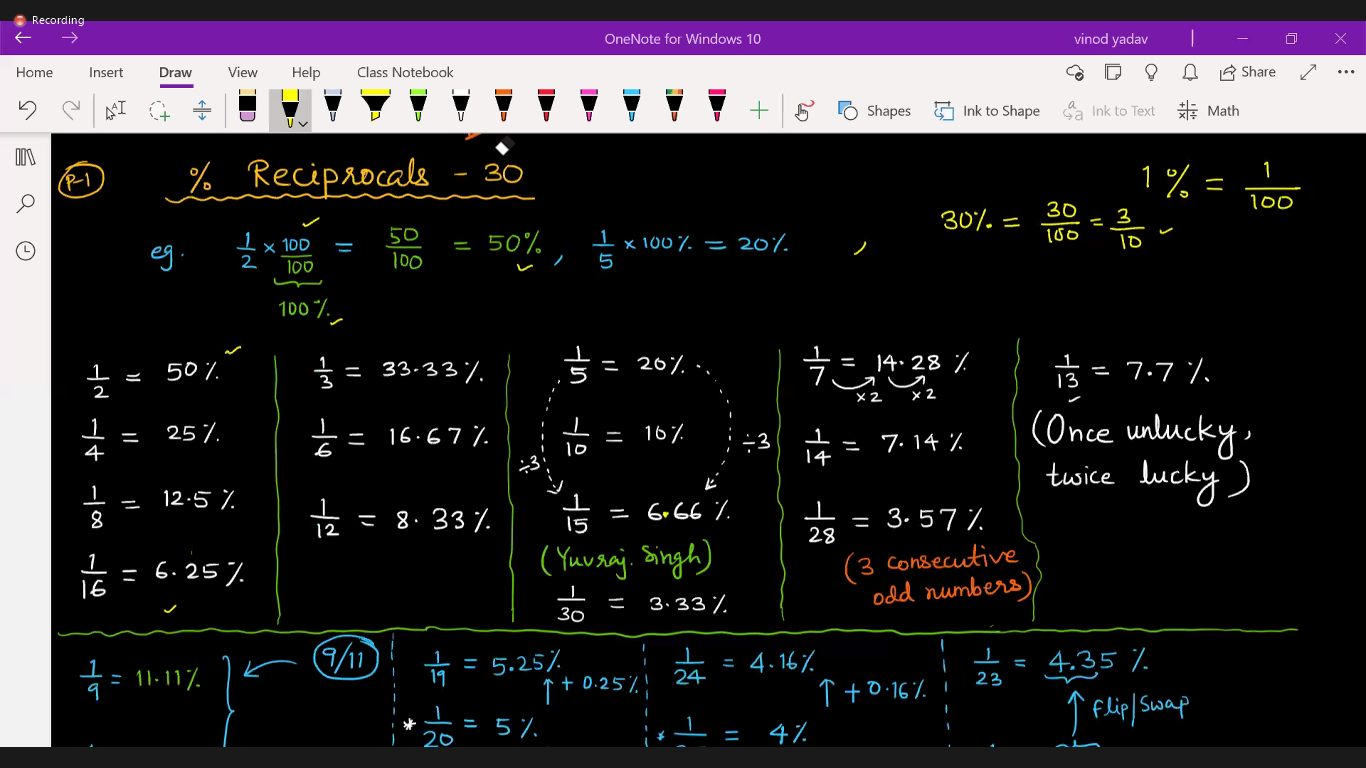 Recording
OneNote for Windows 10
vinod yadav
Home Insert Draw View Help Class Notebook
Share
Shapes Ink to Shape Ink to Text Math
P-1
% Reciprocals - 30
1% = 1/100
30% = 30/100 = 3/10
eg. 1/2 × 100/100 = 50/100 = 50%, 1/5 × 100% = 20% ,
100%
1/2 = 50%
1/4 = 25%
1/8 = 12.5%
1/16 = 6.25%
1/3 = 33.33%
1/6 = 16.67%
1/12 = 8.33%
1/5 = 20%
1/10 = 10%
÷3 ÷3
1/15 = 6.66%
(Yuvraj. Singh)
1/30 = 3.33%
1/7 = 14.28%
×2 ×2
1/14 = 7.14%
1/28 = 3.57%
(3 consecutive
odd numbers)
1/13 = 7.7%
(Once unlucky,
twice lucky)
1/9 = 11.11%
9/11
1/19 = 5.25%
↑ + 0.25%
* 1/20 = 5%
1/24 = 4.16%
↑ + 0.16%
* 1/ = 4%
1/23 = 4.35%
Flip/Swap